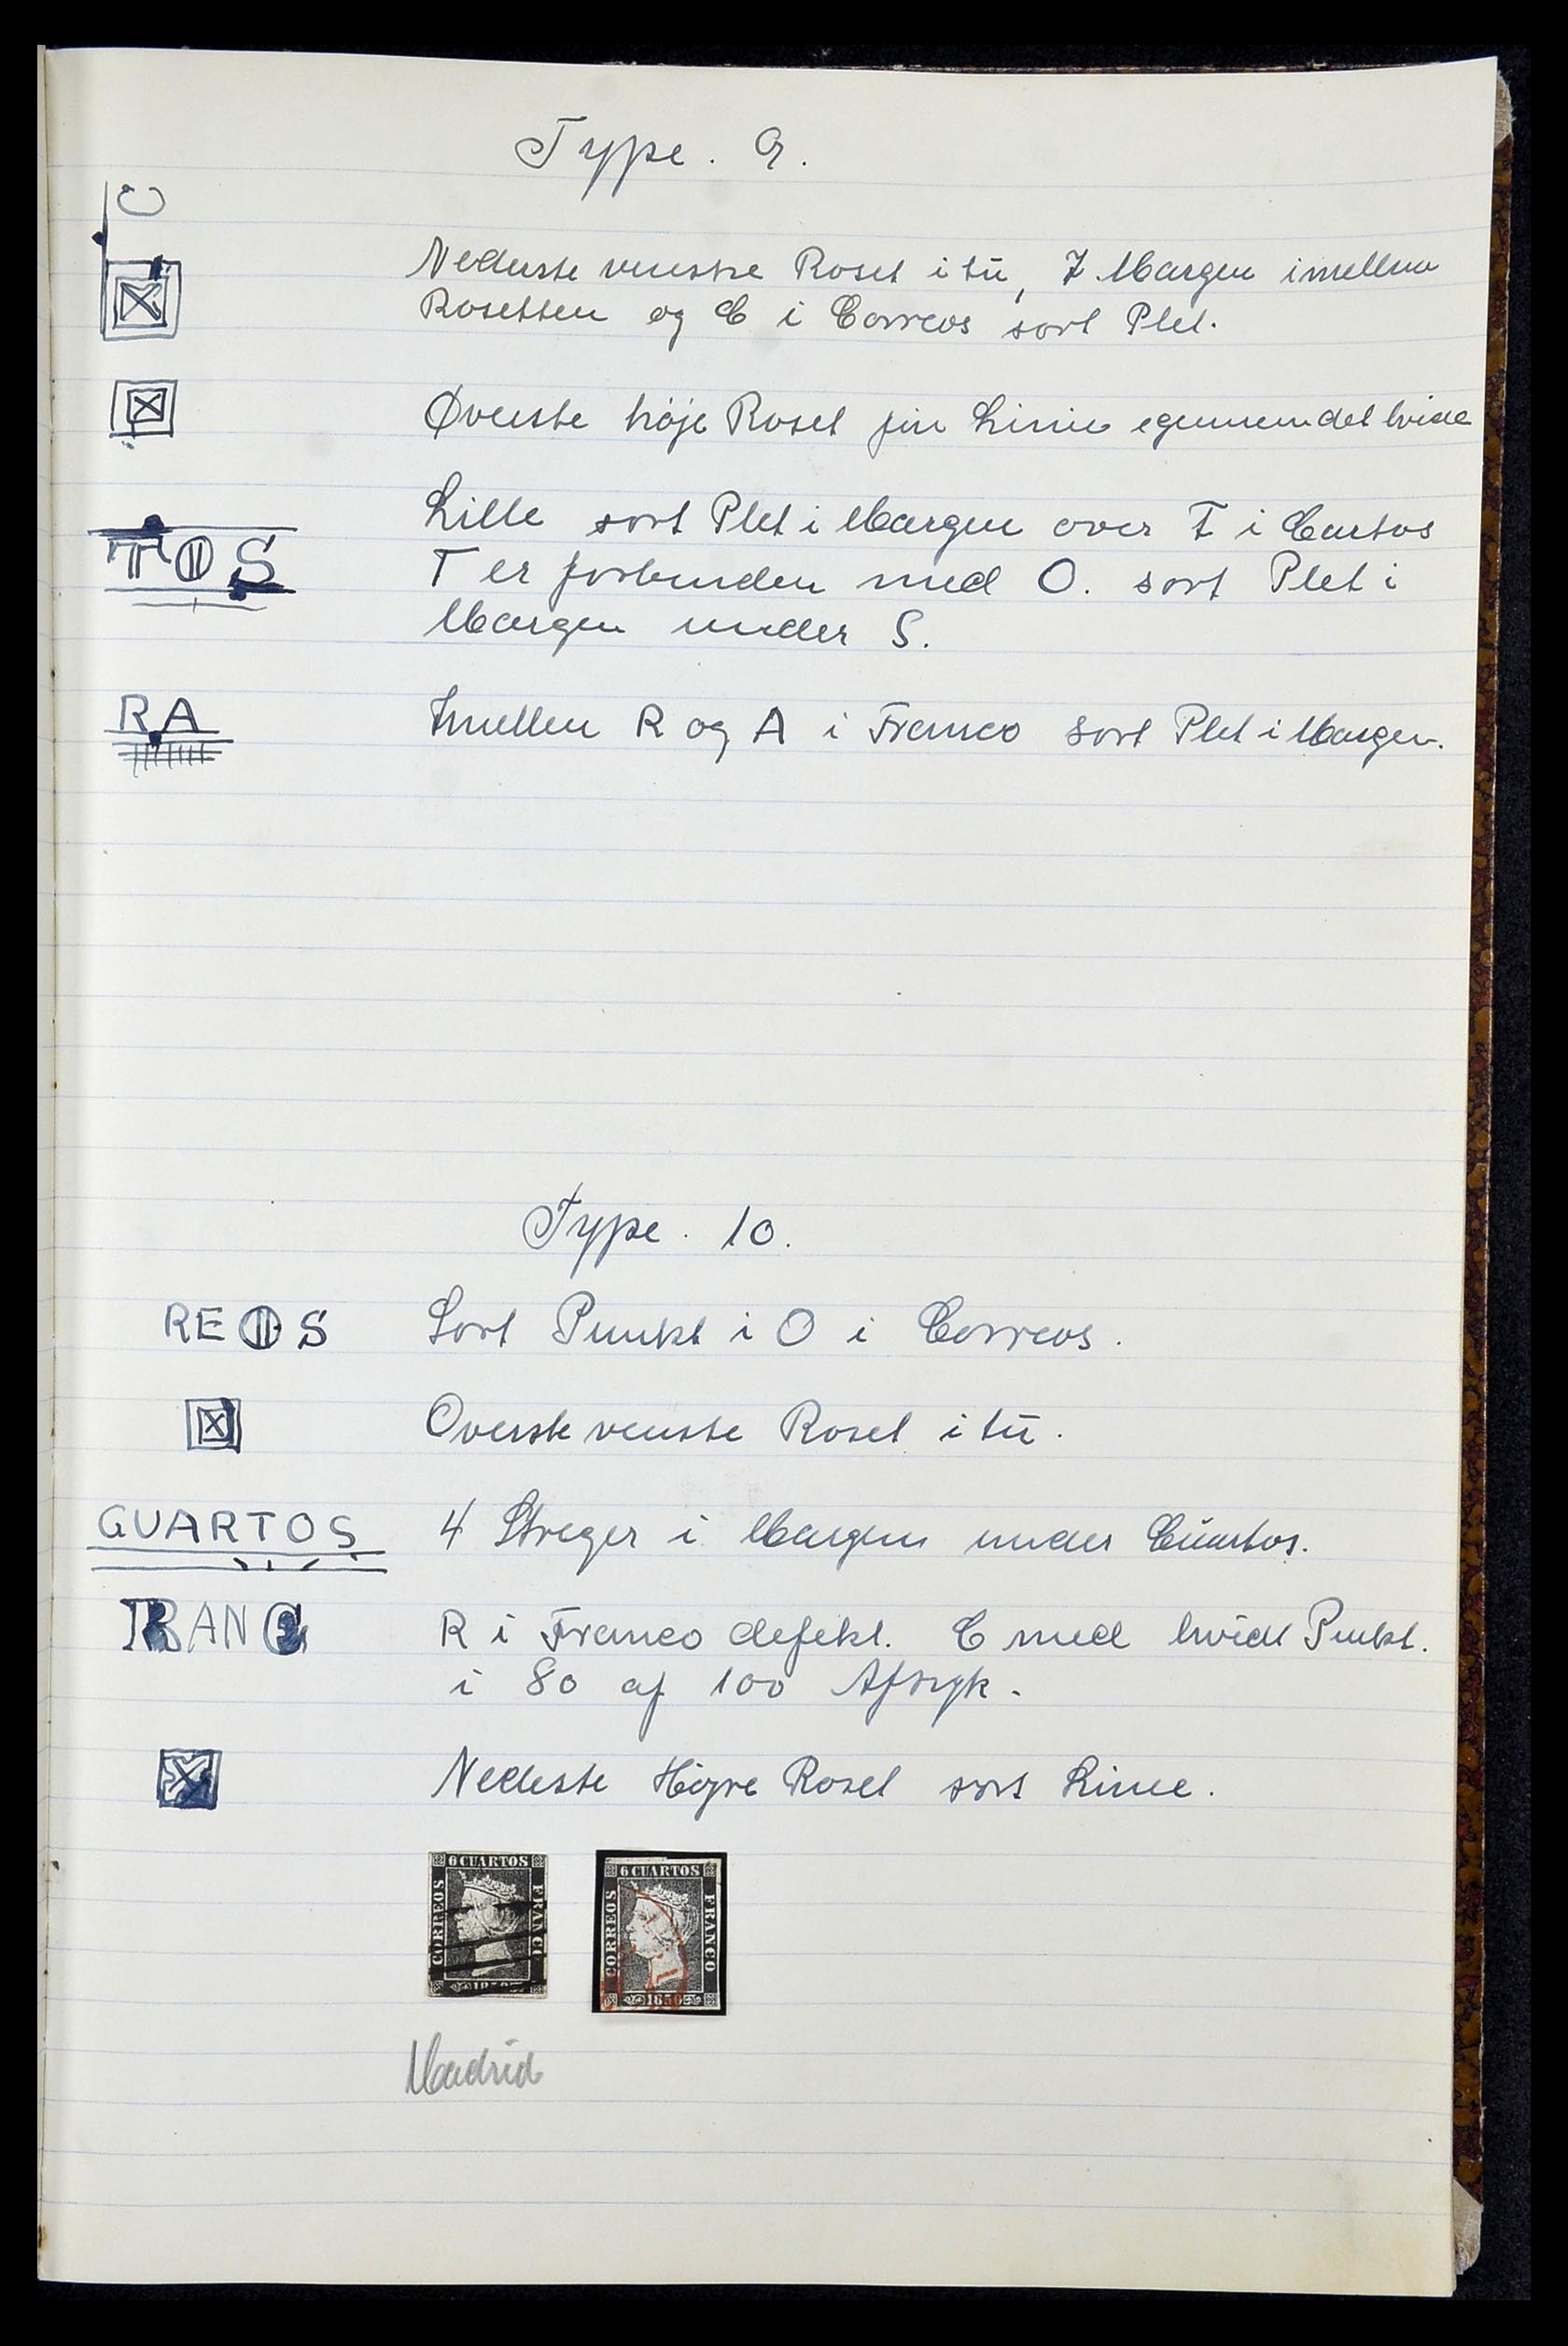 Type. 9.
C
Nederste venstre Roset itu, I Margen imellem
Rosetten og C i Correos sort Plet.
Øverste höje Roset fin Linie egennem det hvide
Lille sort Plet i Margen over T i Cuartos
TOS
T er forbunden med O. sort Plet i
Margen under S.
RA
Imellem R og A i Franco sort Plet i Margen.
Type. 10.
REOS
Sort Punkt i O i Correos.
Overste venstre Roset itu.
CUARTOS
4 Streger i Margen under Cuartos.
RANC
R i Franco defekt. C med hvidt Punkt.
i 80 af 100 Aftryk.
Nedeste Högre Roset sort Linie.
6 CUARTOS
CORREOS
FRANCO
1850
6 CUARTOS
CORREOS
FRANCO
1850
Madrid